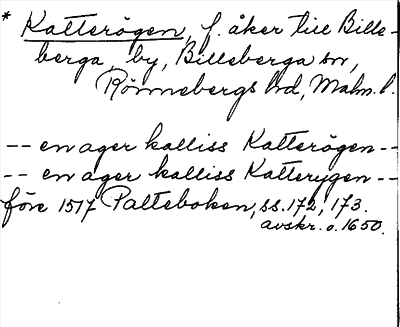 * Katterögen, f. åker till Bille-
berga, by, Billeberga sn,
Rönnebergs hd, Malm. l.
-- en ager kalliss Katterögen --
-- en ager kalliss Katterygen --
före 1517 Palteboken, ss. 172, 173.
avskr. o. 1650.